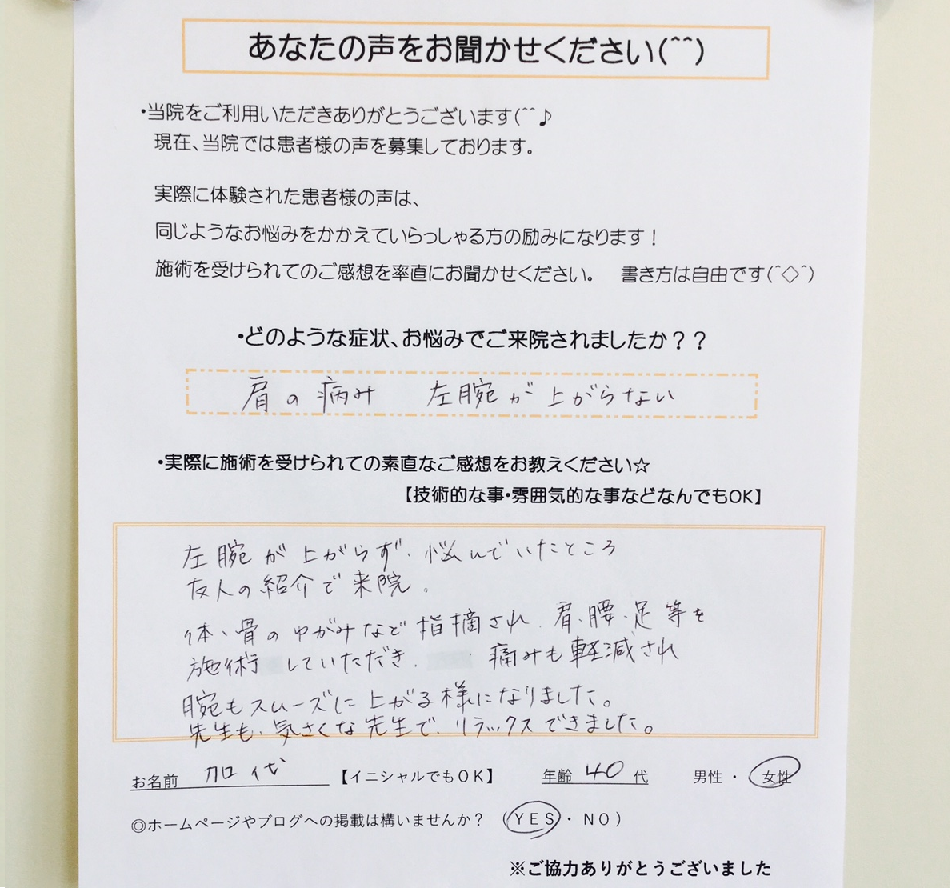 あなたの声をお聞かせください(^^)
・当院をご利用いただきありがとうございます(^^♪
現在、当院では患者様の声を募集しております。
実際に体験された患者様の声は、
同じようなお悩みをかかえていらっしゃる方の励みになります！
施術を受けられてのご感想を率直にお聞かせください。　書き方は自由です(^◇^)
・どのような症状、お悩みでご来院されましたか？？
肩の病み　左腕が上がらない
・実際に施術を受けられての素直なご感想をお教えください☆
【技術的な事・雰囲気的な事などなんでもOK】
左腕が上がらず、悩んでいたところ
友人の紹介で来院。
体、骨のゆがみなど指摘され、肩、腰、足等を
施術していただき、痛みも軽減され
腕もスムーズに上がる様になりました。
先生も、気さくな先生で、リラックスできました。
お名前　加代　【イニシャルでもOK】　年齢 40 代　男性・女性
◎ホームページやブログへの掲載は構いませんか？　(YES・NO)
※ご協力ありがとうございました